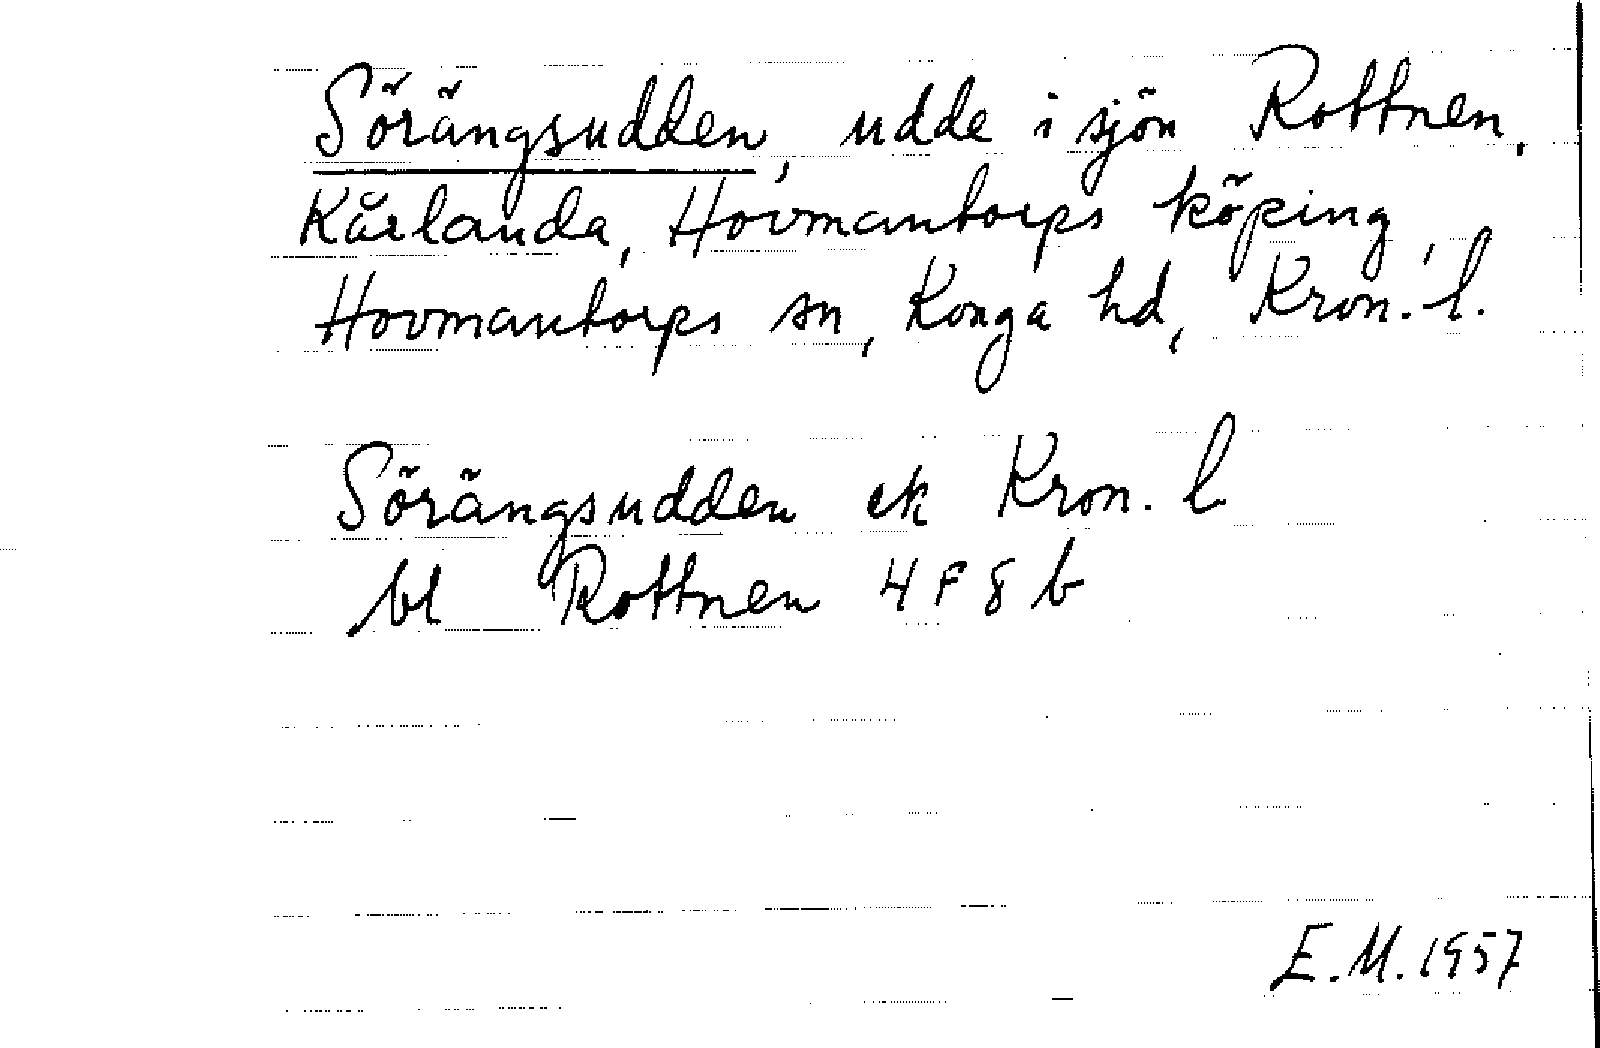 Sörängsudden, udde i sjön Rottnen,
Kårlanda, Hovmantorps köping,
Hovmantorps sn, Konga hd, Kron. l.
Sörängsudden ek Kron. l
bl Rottnen 4 F 8 b
E.M. 1957